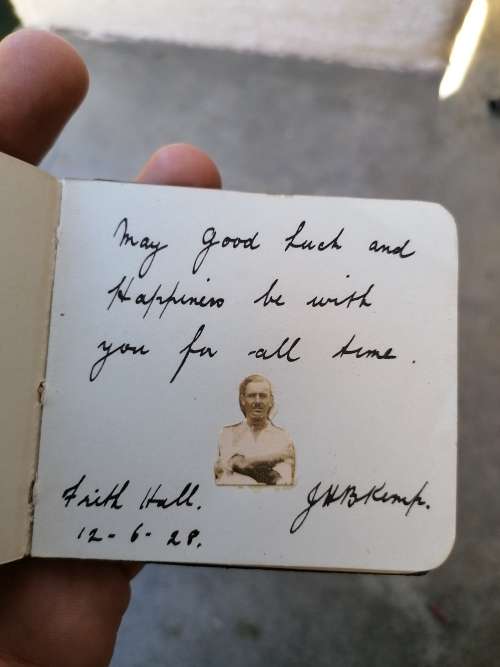 May Good Luck and
Happiness be with
you for all time.
Frith Hall.
12-6-28.
JHBKemp.